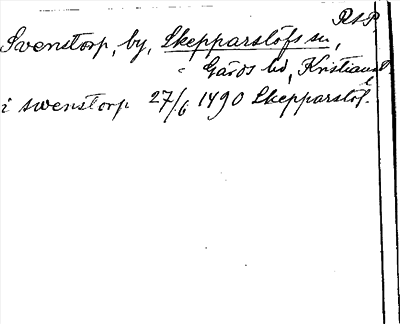 RAP
Svenstorp, by, Skepparslöfs sn,
Gärds hd, Kristianst. l.
i swenstorp 27/6 1490 Skepparslöf.